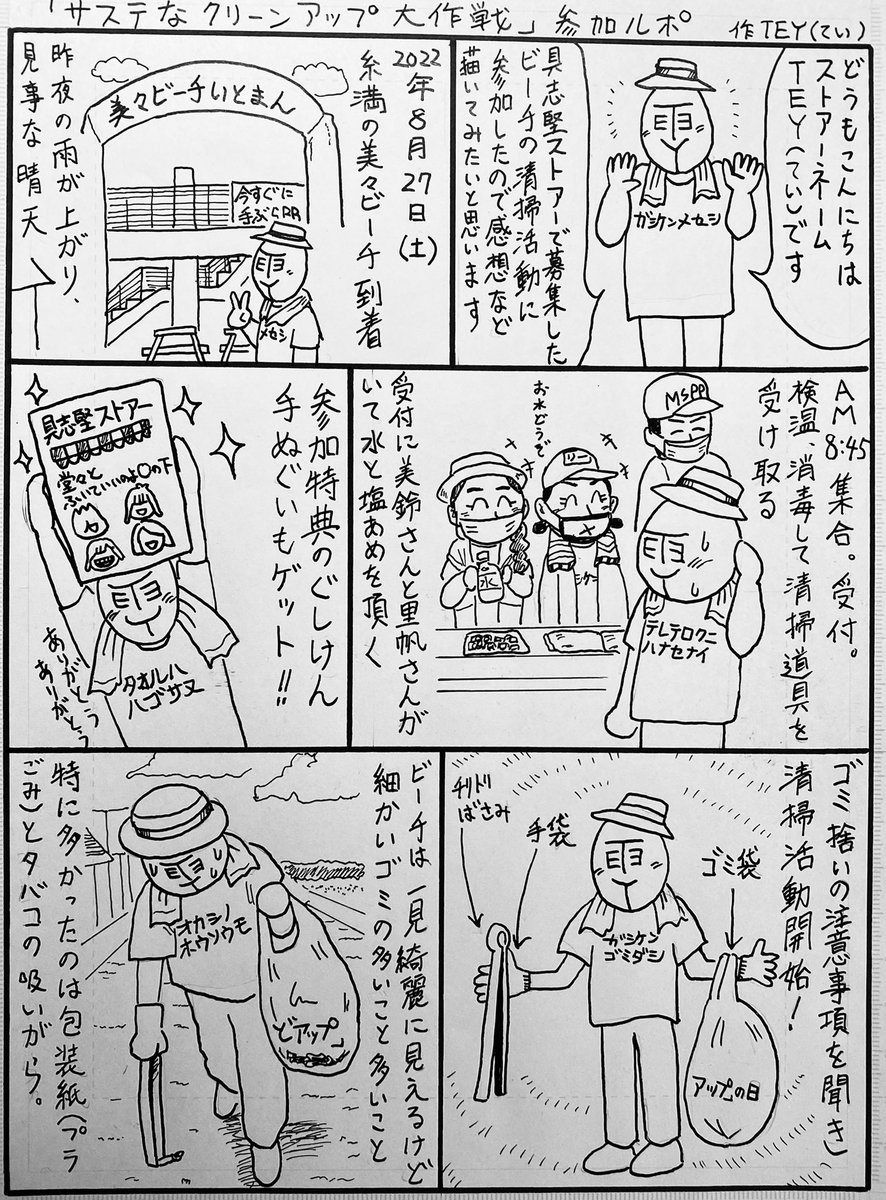 「サステなクリーンアップ大作戦」参加ルポ
作TEY(てい)
どうもこんにちは
ストアーネーム
TEY(てい)です
ガシケンメセシ
具志堅ストアーで募集した
ビーチの清掃活動に
参加したので感想など
描いてみたいと思います
2022年8月27日(土)
糸満の美々ビーチ到着
美々ビーチいとまん
今すぐに
手ぶら
メセシ
昨夜の雨が上がり、
見事な晴天
AM8:45集合。受付。
検温、消毒して清掃道具を
受け取る
MSPP
お水どうぞ
リー
水
シケン
テレテロクニ
ハナセナイ
受付に美鈴さんと里帆さんが
いて水と塩あめを頂く
参加特典のぐしけん
手ぬぐいもゲット!!
具志堅ストアー
堂々と
ふいていいのよ〇の下
タオルハ
ハゴサヌ
ありがとう
ありがとう
ゴミ捨いの注意事項を聞き
清掃活動開始!
チリトリ
ばさみ
手袋
ゴミ袋
ガシケン
ゴミダシ
アップ」の日
ビーチは一見綺麗に見えるけど
細かいゴミの多いこと多いこと
オカシノ
ホウソウモ
ん
どアップ」
特に多かったのは包装紙(プラ
ごみ)とタバコの吸いがら。